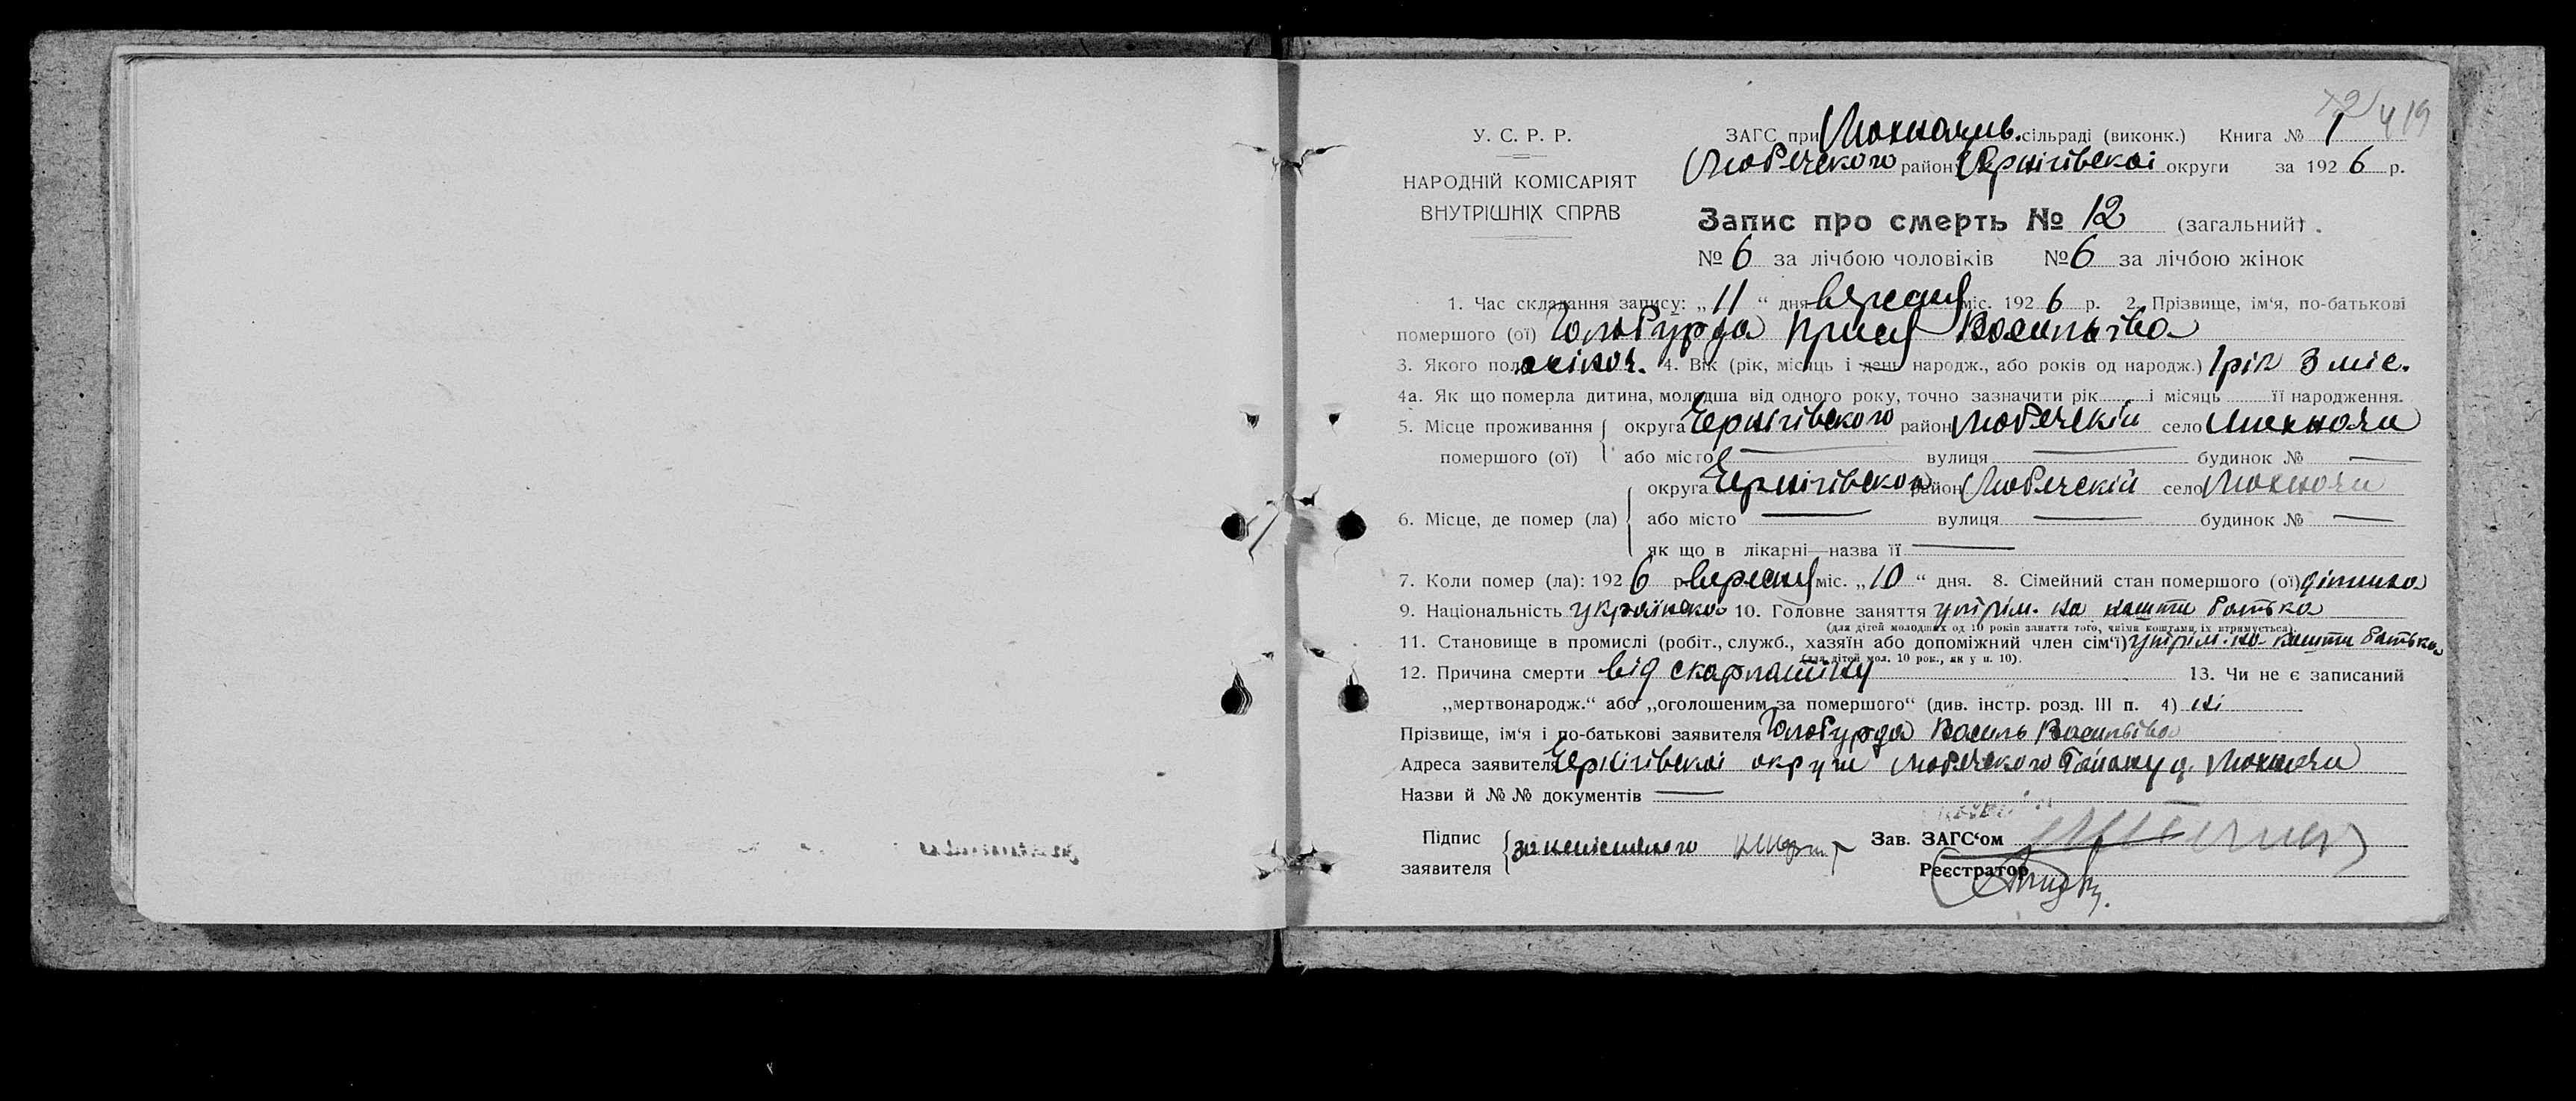 419
У. С. Р. Р.
НАРОДНІЙ КОМІСАРІЯТ
ВНУТРІШНІХ СПРАВ
ЗАГС при Мохначив. сільраді (виконк.) Книга № 1
Любечского район Чернігівскоі округи за 1926 р.
Запис про смерть № 12 (загальний)
№ 6 за лічбою чоловіків № 6 за лічбою жінок
1. Час складання запису: „11“ дня вересня міс. 1926 р. 2. Прізвище, ім'я, по-батькові
помершого (ої) Гольбурда Прися Васильівна
3. Якого пол жіноч. 4. Вік (рік, місяць і день народж., або років од народж.) 1 рік 3 міс.
4а. Як що померла дитина, молодша від одного року, точно зазначити рік і місяць її народження.
5. Місце проживання помершого (ої) округа Чернігівского район Любечскій село Мохначи
або місто — вулиця — будинок № —
6. Місце, де помер (ла) округа Чернігівского район Любечскій село Мохначи
або місто — вулиця — будинок № —
як що в лікарні—назва її —
7. Коли помер (ла): 1926 р. вересня міс. „10“ дня. 8. Сімейний стан помершого (ої) дітина
9. Національність українка 10. Головне заняття утрім. на кошти батька
(для дітей молодших од 10 років заняття того, чиїми коштами їх втримується).
11. Становище в промислі (робіт., служб., хазяїн або допоміжний член сім'ї) утрім. на кошти батька
(для дітей мол. 10 рок., як у п. 10).
12. Причина смерти від скарлатіни 13. Чи не є записаний
„мертвонародж.“ або „оголошеним за помершого“ (див. інстр. розд. III п. 4) ні
Прізвище, ім'я і по-батькові заявителя Гольбурда Василь Васильівич
Адреса заявителя Чернігівскоі округи Любечского Району д. Мохначи
Назви й №№ документів —
Підпис заявителя за неписменого
Зав. ЗАГС'ом
Реєстратор